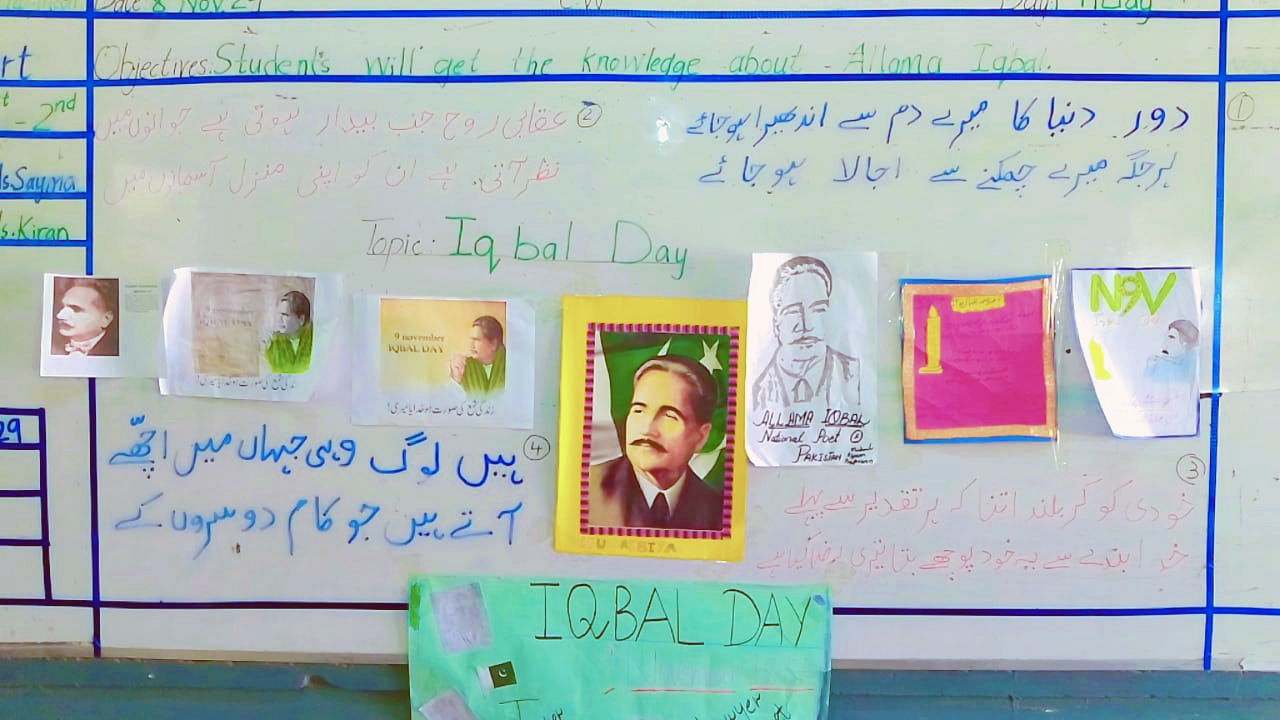 Date 8 Nov.24
C.W
Day:
Objectives: Student's will get the knowledge about - Allama Iqbal.
rt
- 2nd
s.Sayma
s.Kiran
29
①
دور دنیا کا میرے دم سے اندھیرا ہو جائے
ہر جگہ میرے چمکنے سے اجالا ہو جائے
②
عقابی روح جب بیدار ہوتی ہے جوانوں میں
نظر آتی ہے ان کو اپنی منزل آسمانوں میں
Topic: Iqbal Day
IQBAL DAY
زندگی شمع کی صورت ہو خدایا میری!
9 november
IQBAL DAY
زندگی شمع کی صورت ہو خدایا میری!
ALLAMA IQBAL
National Poet
PAKISTAN
NOV
9
③
خودی کو کر بلند اتنا کہ ہر تقدیر سے پہلے
خدا بندے سے یہ خود پوچھے بتا تیری رضا کیا ہے
④
ہیں لوگ وہی جہاں میں اچھے
آتے ہیں جو کام دوسروں کے
IQBAL DAY